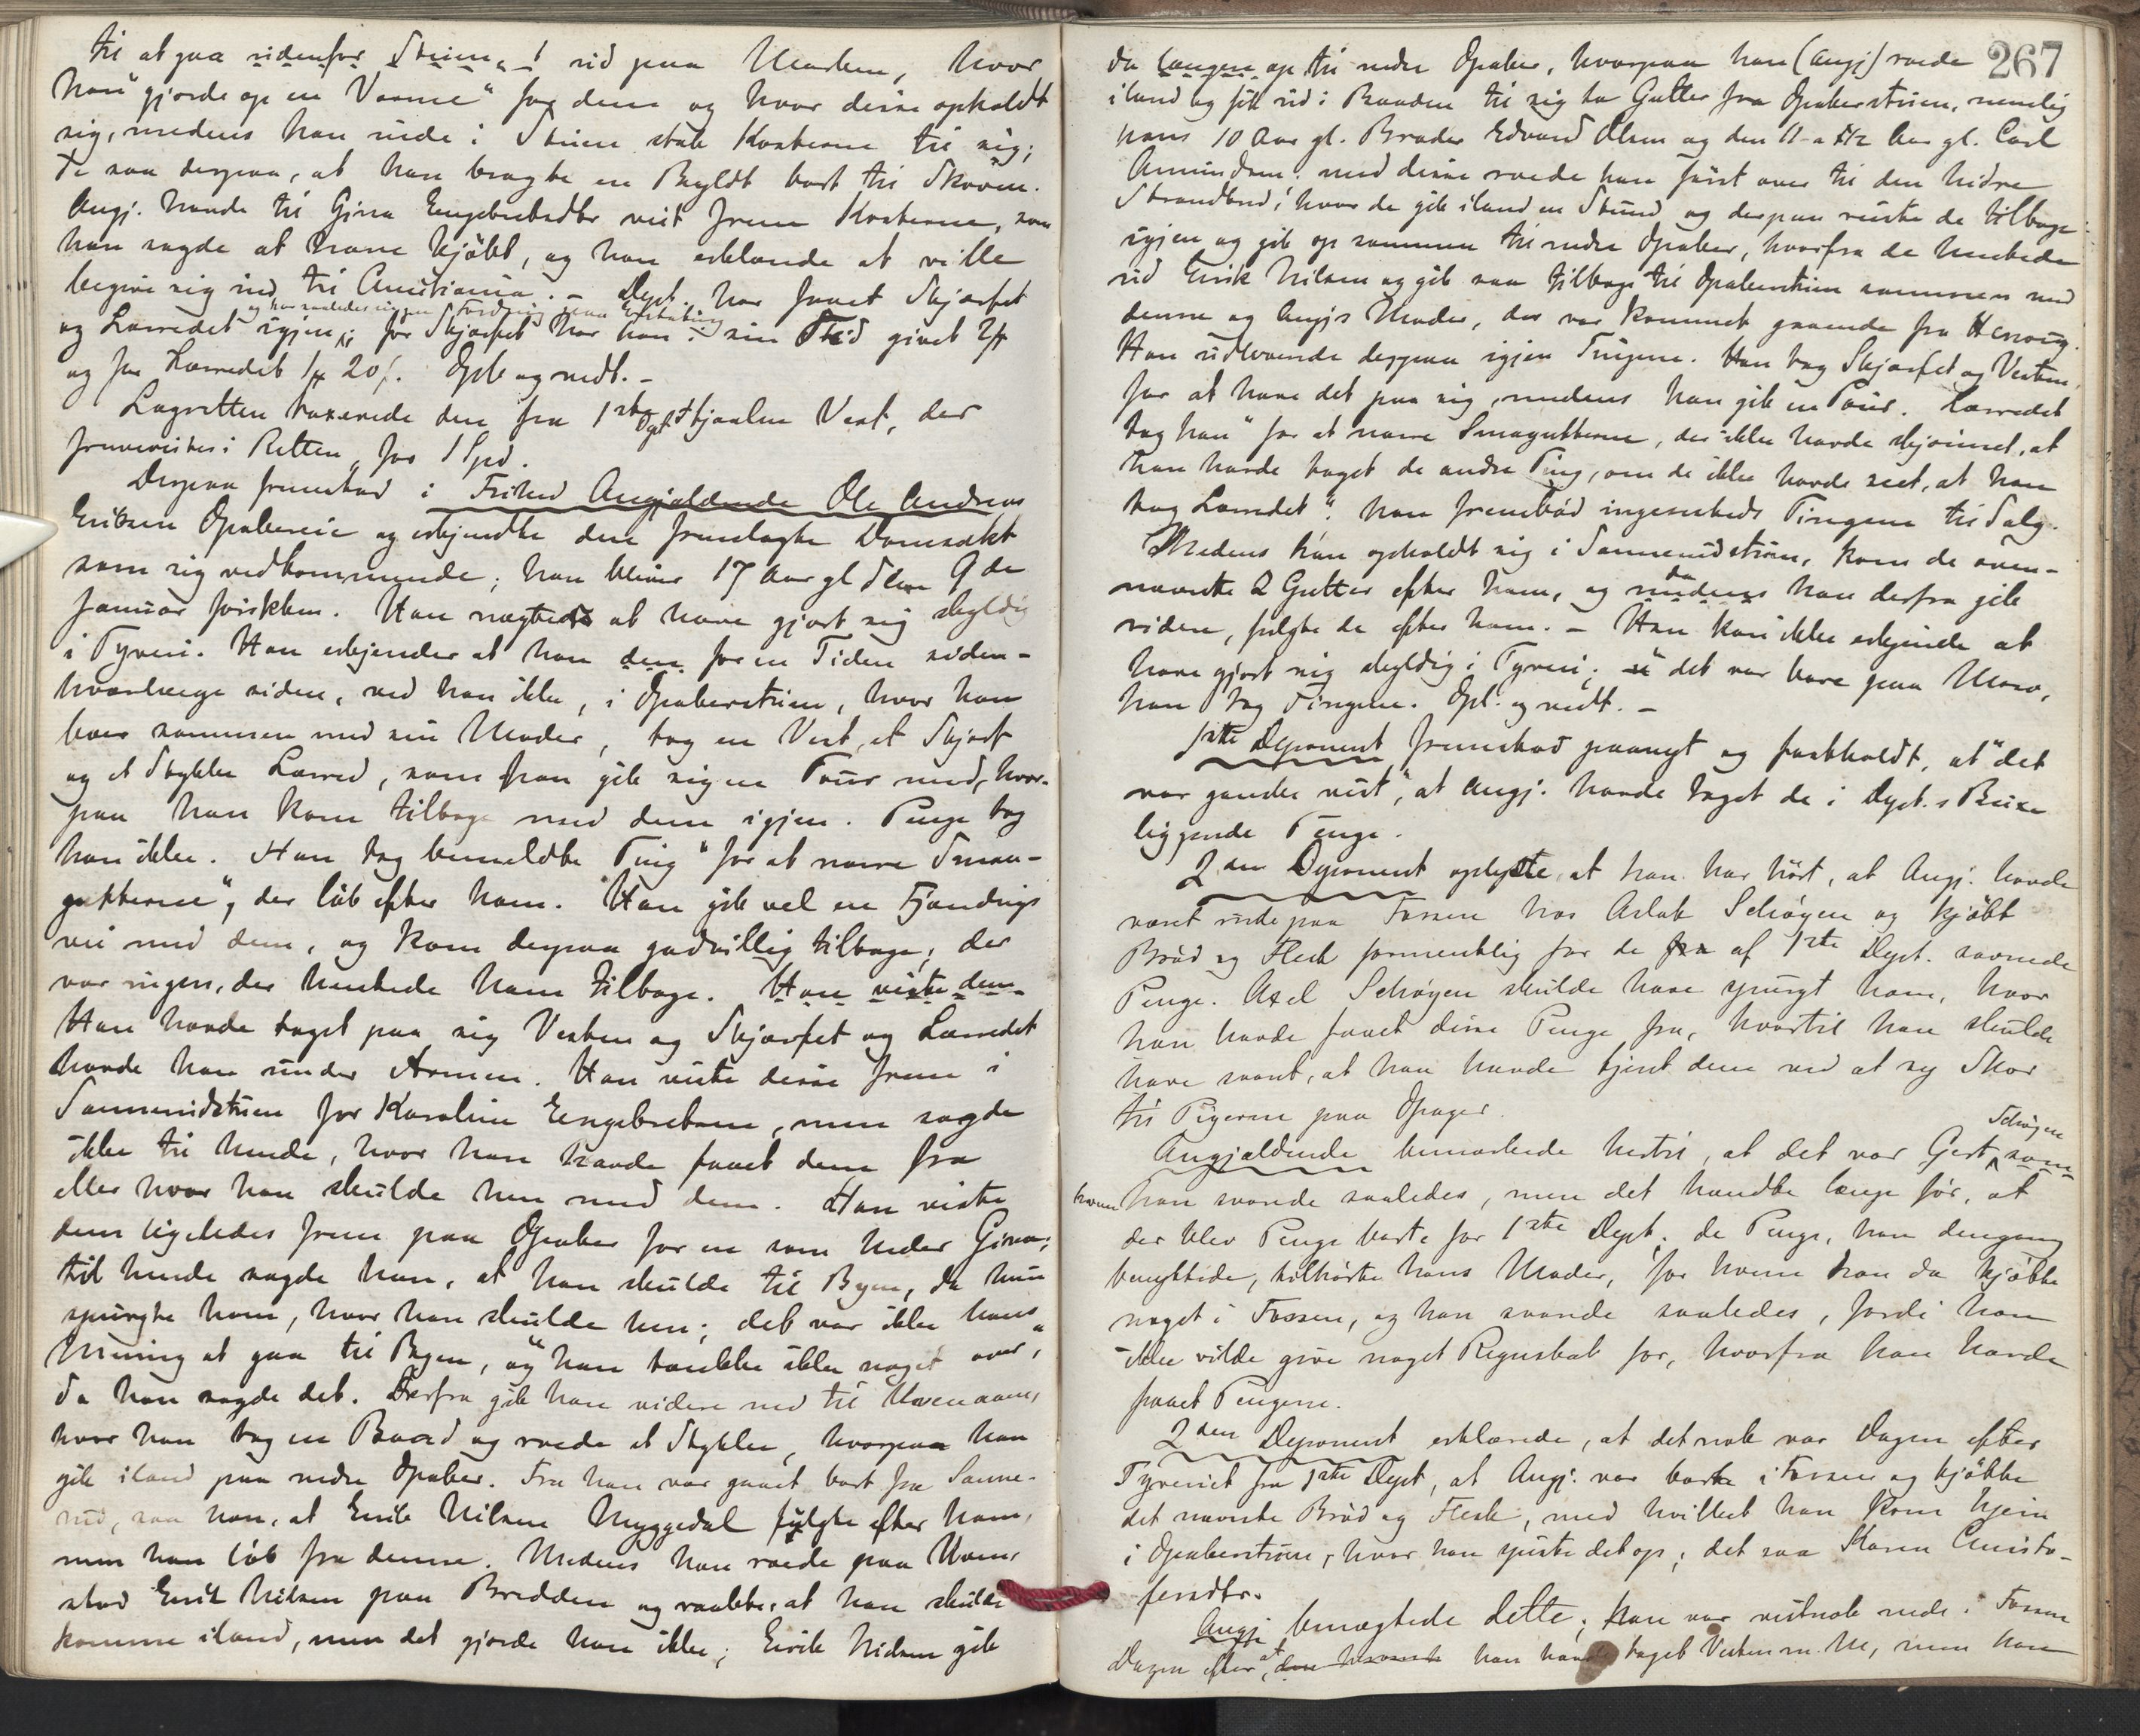 til at gaa udenfor Stuen, ud paa Marken, hvor
han "gjorde op en Varme" for dem og hvor disse opholdt
sig, medens han inde i Stuen stak Kosterne til sig;
De saa derpaa, at han bragte en Byldt bort til Skoven.
Angj. havde til Gina Engebretsdtr vist frem Kosterne, som
han sagde at have kjøbt, og han erklærede at ville
begive sig ind til Christiania. – Dept. har faaet Skjærfet
og har saaledes ingen Fordring paa Erstatning
og Lærredet igjen; for Skjærfet har han i sin Tid givet 2 #
og for Lærredet 1 # 20 s. Opl. og vedt. –
Lagretten taxerede den fra 1ste Dept. stjaalne Vest, der
foreviistes i Retten, for 1 Spd.
Derpaa fremstod i Frihed Angjældende Ole Andreas
Eriksen Opakereie og erkjendte den fremlagte Daabsakt
som sig vedkommende; han bliver 17 Aar gl den 9de
Januar førstkom. Han nægtede at have gjort sig skyldig
i Tyveri. Han erkjender at han den for en Tiden siden –
hvorlænge siden, ved han ikke, i Opakerstuen, hvor han
boer sammen med sin Moder, tog en Vest, et Skjærf
og et Stykke Lærred, som han gik sig en Tour med, hvor-
paa han kom tilbage med dem igjen. Penge tog
han ikke. Han tog bemeldte Ting "for at narre Smaa-
gutterne", der løb efter ham. Han gik vel en Fjerdings
vei med dem, og kom derpaa godvillig tilbage; der
var ingen, der hentede ham tilbage. Han viste dem
Han havde taget paa sig Vesten og Skjærfet og Lærredet
havde han under Armen. Han viste disse frem i
Sannerudstuen for Karoline Engebretsen, men sagde
ikke til hende, hvor han havde faaet dem fra
eller hvor han skulde hen med dem. Han viste
dem ligeledes frem paa Opaker for en som heder Gina;
til hende sagde han, at han skulde til Byen, da hun
spurgte ham, hvor han skulde hen; det var ikke hans
Mening at gaa til Byen, og "han tænkte ikke noget over",
da han sagde det. Derfra gik han videre ned til
hvor han tog en Baad og roede et Stykke, hvorpaa han
gik iland paa nedre Opaker. Fra han var gaaet bort fra Sanne-
rud, saa han, at Enik Nilsen Myggedal fulgte efter ham,
men han løb fra denne. Medens han roede paa
stod Enik Nilsen paa Bredden og raabte, at han skulde
komme iland, men det gjorde han ikke; Enik Nilsen gik
267
da længere op til nedre Opaker, hvorpaa han (Angj) roede
iland og fik ud i Baaden til sig to Gutter fra Opakerstuen, nemlig
hans 10 Aar gl. Broder Edvard Olsen og den 11 a 11 1/2 Aar gl. Carl
Amundsen; med disse roede han først over til den hidre
Strandbred, hvor de gik iland en Stund og derpaa reiste de tilbage
igjen og gik op sammen til nedre Opaker, hvorfra de hentede
ud Enrik Nilsen og gik saa tilbage til Opakerstuen sammen med
denne og Angj's Moder, der var kommet gaaende fra
Han udleverede derpaa igjen Tingene. Han tog Skjærfet og Vesten
for at have det paa sig, medens han gik en Tour. Lærredet
tog han "for at narre Smaagutterne, der ikke havde skjønnet, at
han havde taget de andre Ting, om de ikke havde seet, at han
tog Lærredet". Han frembød ingensteds Tingene til Salg.
Medens han opholdt sig i Sannerudstuen, kom de oven-
nævnte 2 Gutter efter ham, og da medens han derfra gik
videre, fulgte de efter ham. – Han kan ikke erkjende at
have gjort sig skyldig i Tyveri; det var bare paa Moro,
han tog Tingene. Opl. og vedt. –
1ste Deponent fremstod paanyt og fastholdt, at "det
var ganske vist", at Angj. havde taget de i Dept.s Buxe
liggende Penge.
2den Deponent oplyste, at han har hørt, at Angj. havde
været nede paa Fossen hos Aslak Schøyen og kjøbt
Brød og Flesk formentlig for de fra af 1ste Dept. savnede
Penge. Axel Schøyen skulde have spurgt ham, hvor
han havde faaet disse Penge fra, hvortil han skulde
have svaret, at han havde tjent dem ved at sy Skor
til Pigerne paa Opager.
Angjældende bemærkede hertil, at det var Gert Schøyen som
hvem han svarede saaledes, men det hændte længe før, at
der blev Penge borte for 1ste Dept.; de Penge, han dengang
benyttede, tilhørte hans Moder, for hvem han da kjøbte
noget i Fossen, og han svarede saaledes, fordi han
ikke vilde give noget Regnskab for, hvorfra han havde
faaet Pengene.
2den Deponent erklærede, at det nok var Dagen efter
Tyveriet fra 1ste Dept, at Angj. var borte i Fossen og kjøbte
det nævnte Brød og Flesk, med hvilket han kom hjem
i Opakerstuen, hvor han spiste det op; det saa Karen Christo-
fersdtr.
Angj benægtede dette; han var vistnok nede i Fossen
Dagen efter at han havde taget Vesten m. M, men han